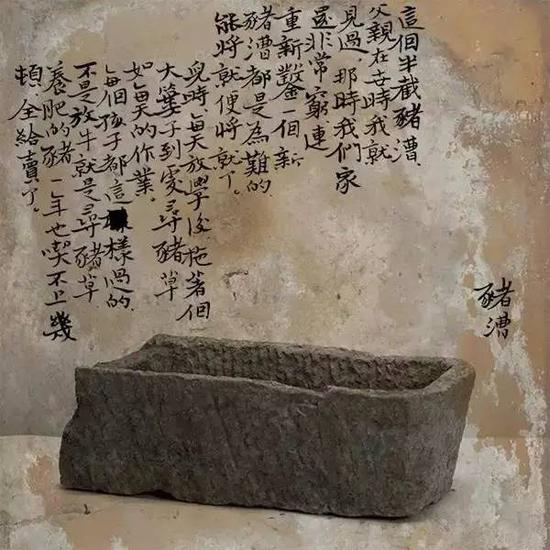 豬漕
這個半截豬漕
父親在世時我就
見過，那時我們家
還非常窮連
重新鑿一個新
豬漕都是為難的
能將就便將就了。
兒時每天放學後拖著個
大簍子到處尋豬草
如每天的作業。
每個孩子都這樣過的
不是放牛就是尋豬草
養肥的豬一年也喫不上幾
頓全給賣了。